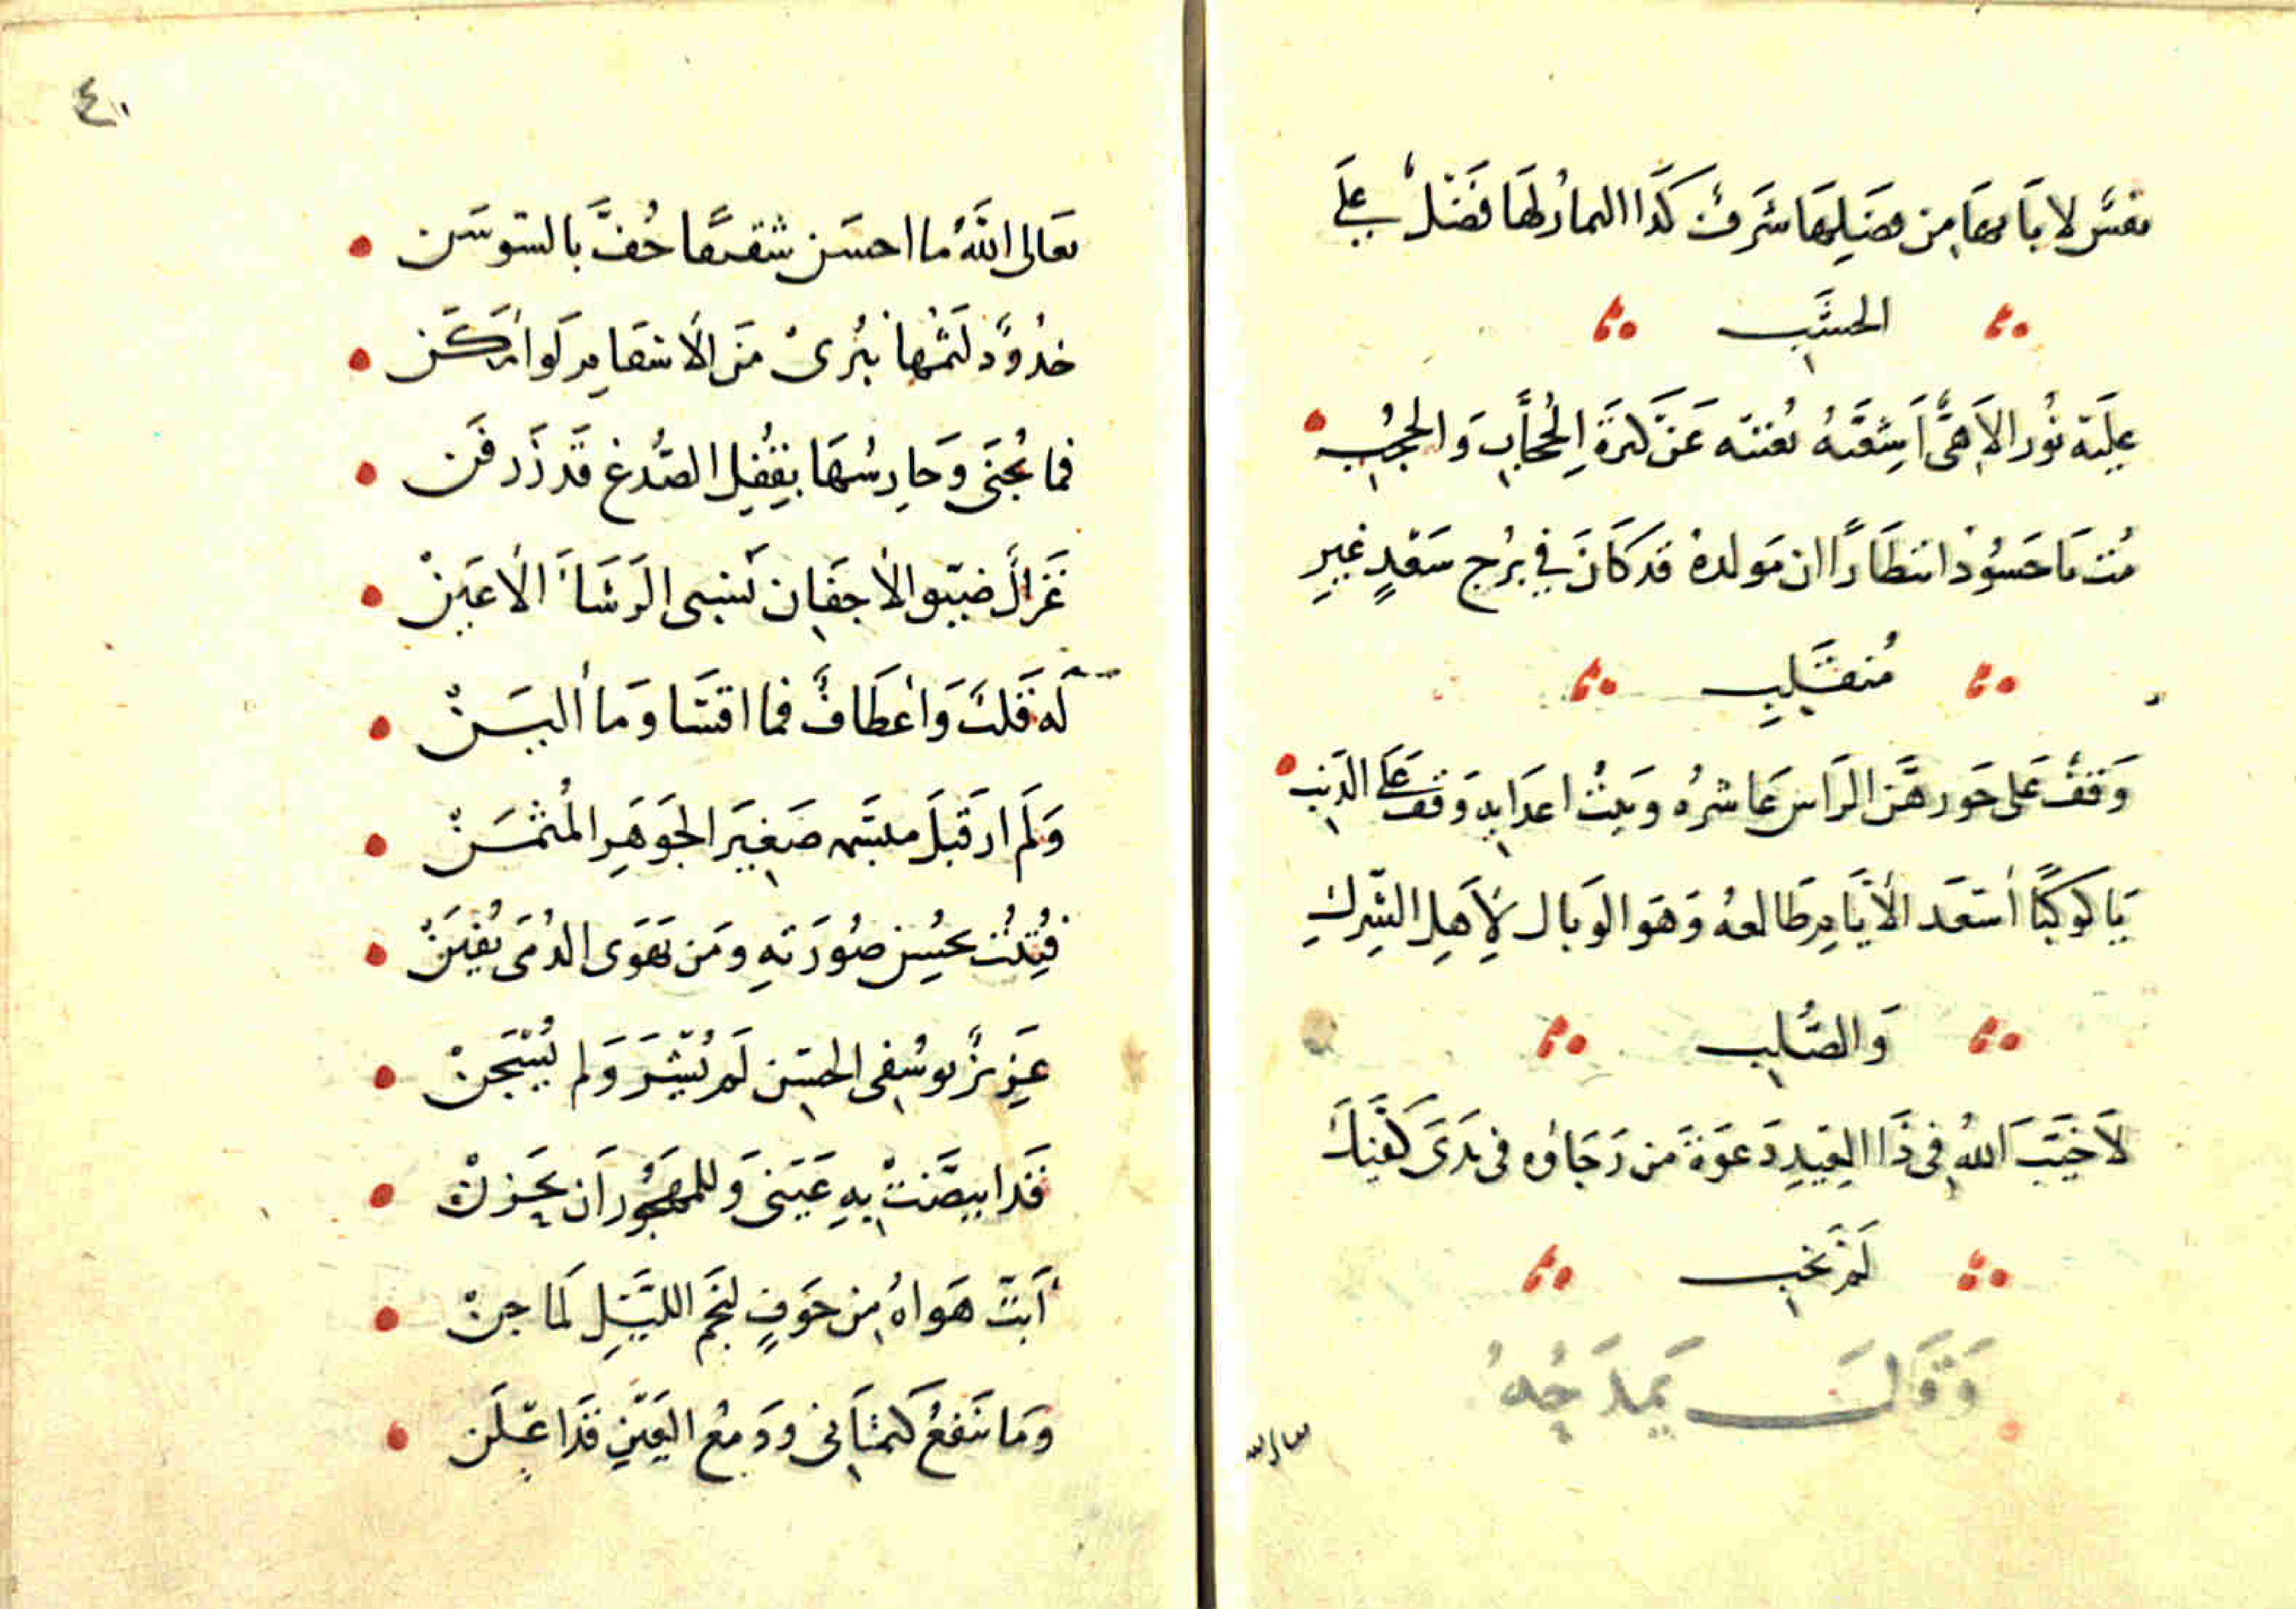 نفس لابائها من فضلها شرف كذا الثمار لها فضل على
الحسب
عليه نور الاهى اشعته تغنيه عن كثرة الحجاب والحجب
مت يا حسود انتظارا ان مولده قد كان في برج سعد غير
منقلب
وقف على حوزهن الراس عاشره وبيت اعدايه وقف على الذنب
يا كوكبا أسعد الأيام طالعه وهو الوبال لأهل الشرك
والصلب
لا خيب الله في ذا العيد دعوة من رجاؤه في ندى كفيك
لم يخب
وقال يمدحه
٤١
تعالى الله ما احسن شقيقا حف بالسوسن
خدود لثمها يبرى من الأسقام لو أمكن
فما تجنى وحارسها بقفل الصدغ قد زرفن
غزال ضيق الأجفان يسبى الرشأ الأعين
له قلب وأعطاف فما اقسا وما ألين
ولم ار قبل مبسمه صغير الجوهر المثمن
فتنت بحسن صورته ومن يهوى الدمى يفتن
عزيز يوسفى الحسن لم يشر ولم يسجن
قد ابيضت به عينى وللمهجور ان يحزن
أبث هواه من خوف لنجم الليل لما جن
وما نفع كتمانى ودمع العين قد اعلن